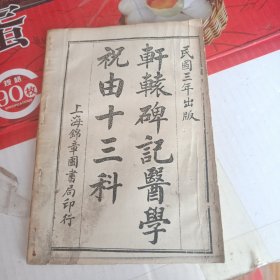 民國三年出版
軒轅碑記醫學
祝由十三科
上海錦章圖書局印行
90枚